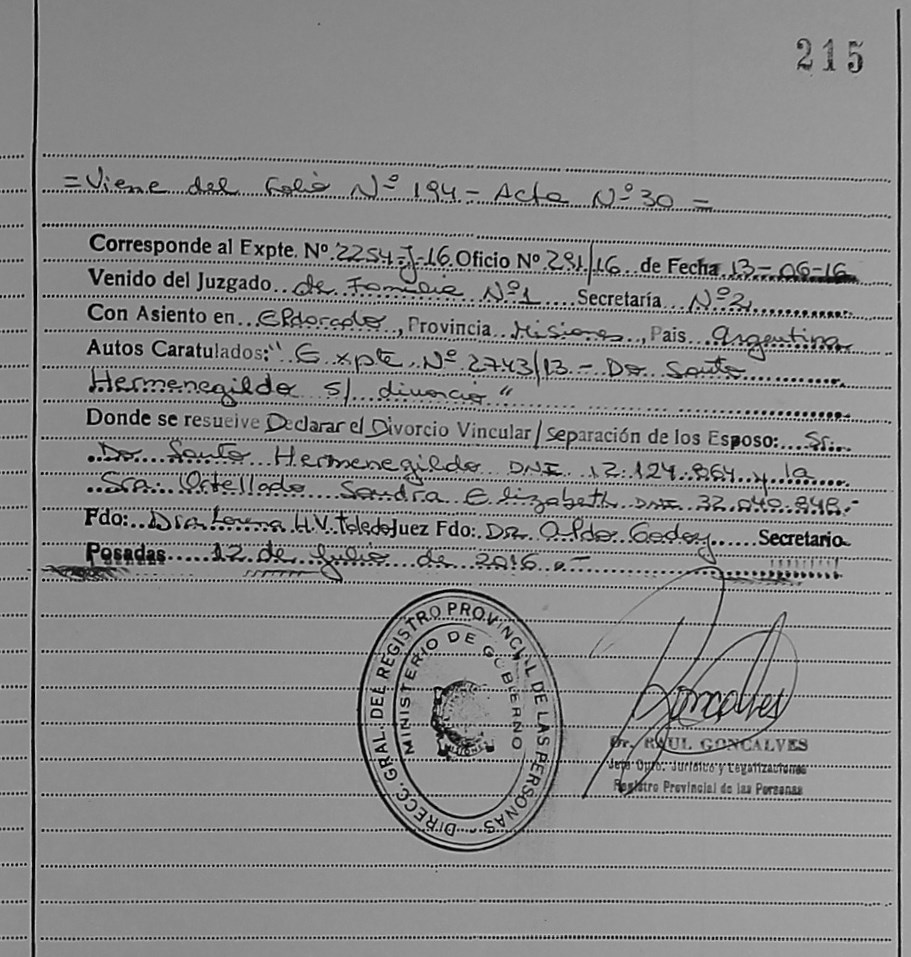 215
= Viene del Folio Nº 194 - Acta Nº 30 =
Corresponde al Expte. Nº 2254-J-16 Oficio Nº 291/16 de Fecha 13-06-16
Venido del Juzgado de Familia Nº1 Secretaría Nº2
Con Asiento en Eldorado, Provincia Misiones, Pais Argentina
Autos Caratulados: "Expte Nº 2743/13 - Do Santo
Hermenegildo s/ divorcio"
Donde se resuelve Declarar el Divorcio Vincular / Separación de los Esposo: Sr.
Do Santo Hermenegildo DNI 12.124.864 y la
Sra: Ortellado Sandra Elizabeth DNI 32.040.848.-
Fdo: Dra Lorena H.V. Toledo Juez Fdo: DR. Aldo Godoy Secretario
Posadas 12 de Julio de 2016.-
DIRECC. GRAL. DEL REGISTRO PROVINCIAL DE LAS PERSONAS
MINISTERIO DE GOBIERNO
MISIONES
Goncalves
Dr. RAUL GONCALVES
Jefe Dpto. Jurídico y Legalizaciones
Registro Provincial de las Personas